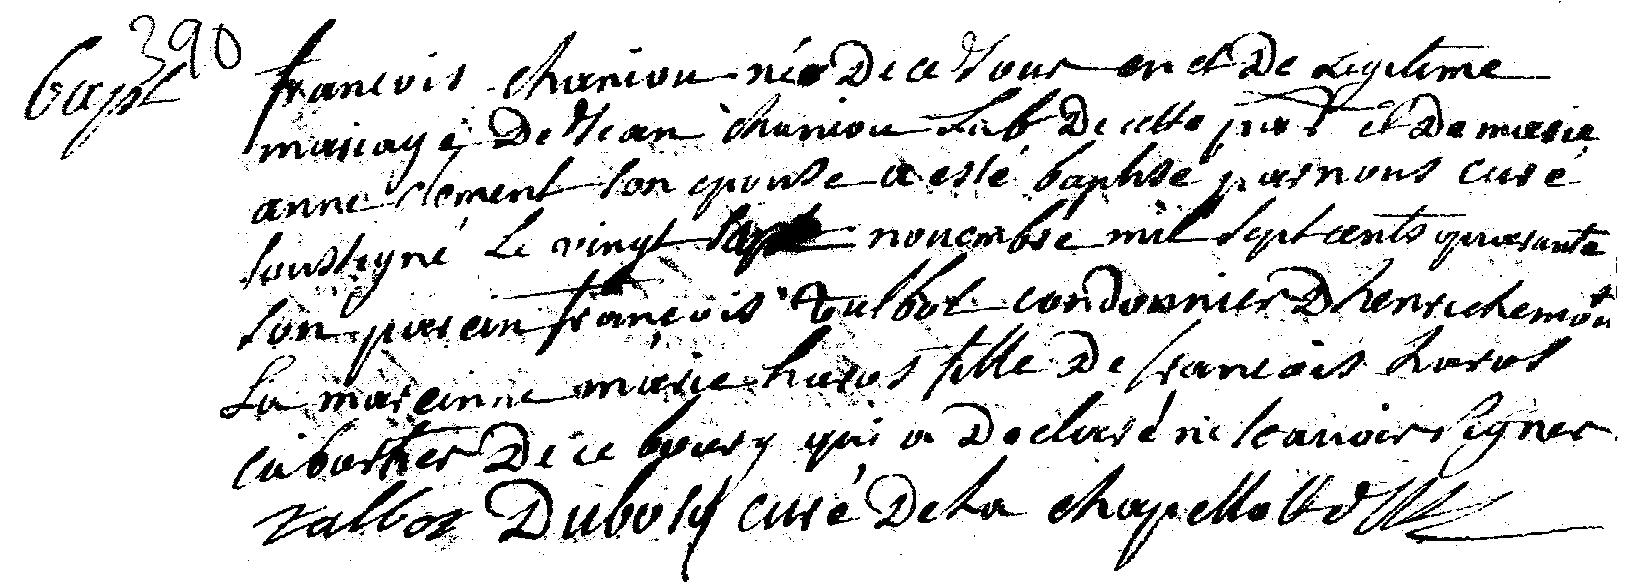 390
bapt
françois chaniou né de ce Jour en et de Legitime
mariage de Jean chaniou Lab de cette par et de marie
anne clement son epouse a esté baptisé par nous curé
soussigné Le vingt sept novembre mil sept cents quarante
son parein françois talbot cordonnier d'henrichemon
La mareinne marie haros fille de françois haros
cabartier de ce bourg qui a declaré ne scavoir signer
talbot Dubois curé de La chapellotte